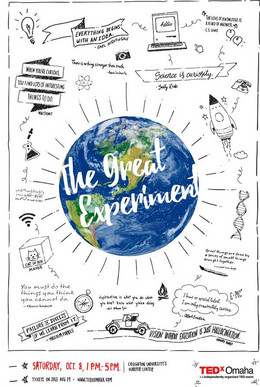 EVERYTHING BEGINS
WITH AN IDEA.
THE LOVE OF KNOWLEDGE IS
A KIND OF MADNESS.
C.S. LEWIS
WHEN YOU'RE CURIOUS,
YOU FIND LOTS OF INTERESTING
THINGS TO DO.
There is nothing stranger than truth.
Science is curiosity.
- Sally Ride
The Great
Experiment
CAT IN BOX
MAYBE
You must do the
things you think
you cannot do
FAILURE IS SUCCESS
IF WE LEARN FROM IT.
- MALCOLM FORBES
Exploration is what you do when
you don't know what you're doing
I have no special talent.
I am only passionately curious.
E=MC²
VISION WITHOUT EXECUTION IS JUST HALLUCINATION.
SATURDAY, OCT. 8, 1 PM-5 PM.
CREIGHTON UNIVERSITY'S
HARPER CENTER
TICKETS ON SALE AUG 19 • WWW.TEDXOMAHA.COM
TEDxOmaha
x = independently organized TED event